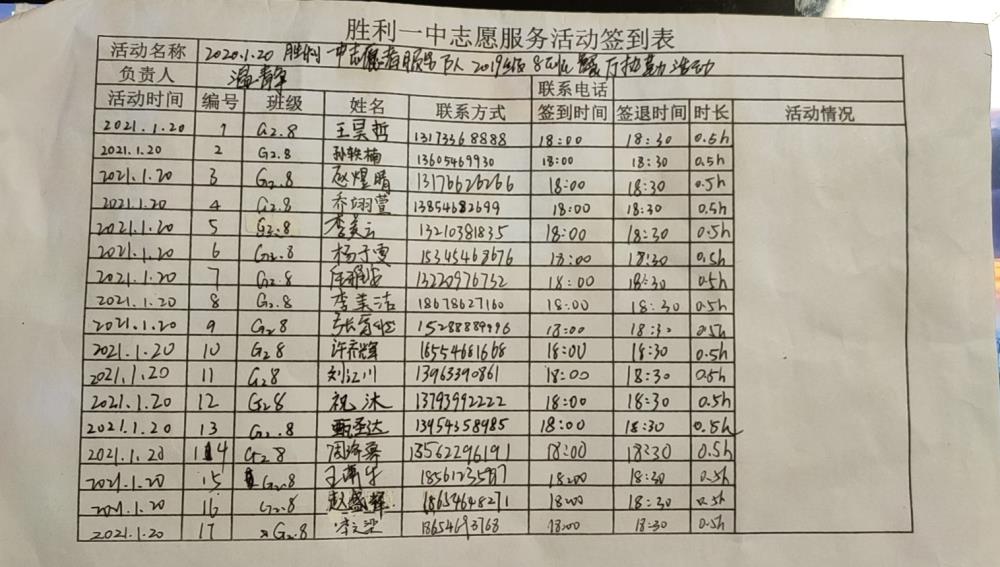 胜利一中志愿服务活动签到表
活动名称 2020.1.20 胜利一中志愿者服务 2019级8 活动
负责人 温静 联系电话
活动时间 编号 班级 姓名 联系方式 签到时间 签退时间 时长 活动情况
2021.1.20 1 G2.8 王昊哲 13173368888 18:00 18:30 0.5h
2021.1.20 2 G2.8 孙轶楠 13605469930 18:00 18:30 0.5h
2021.1.20 3 G2.8 赵煜晴 13176626266 18:00 18:30 0.5h
2021.1.20 4 G2.8 乔翊萱 13854682699 18:00 18:30 0.5h
2021.1.20 5 G2.8 李美云 13210381835 18:00 18:30 0.5h
2021.1.20 6 G2.8 杨子雯 15345468676 18:00 18:30 0.5h
2021.1.20 7 G2.8 13220976732 18:00 18:30 0.5h
2021.1.20 8 G2.8 李美洁 18678627160 18:00 18:30 0.5h
2021.1.20 9 G2.8 15288889996 18:00 18:30 0.5h
2021.1.20 10 G2.8 许乔辉 18554681668 18:00 18:30 0.5h
2021.1.20 11 G2.8 刘江川 13963390861 18:00 18:30 0.5h
2021.1.20 12 G2.8 祝沐 13793992222 18:00 18:30 0.5h
2021.1.20 13 G2.8 甄圣达 13954358985 18:00 18:30 0.5h
2021.1.20 14 G2.8 13562296191 18:00 18:30 0.5h
2021.1.20 15 G2.8 18:00 18:30 0.5h
2021.1.20 16 G2.8 赵盛辉 18654648271 18:00 18:30 0.5h
2021.1.20 17 G2.8 18654693768 18:00 18:30 0.5h